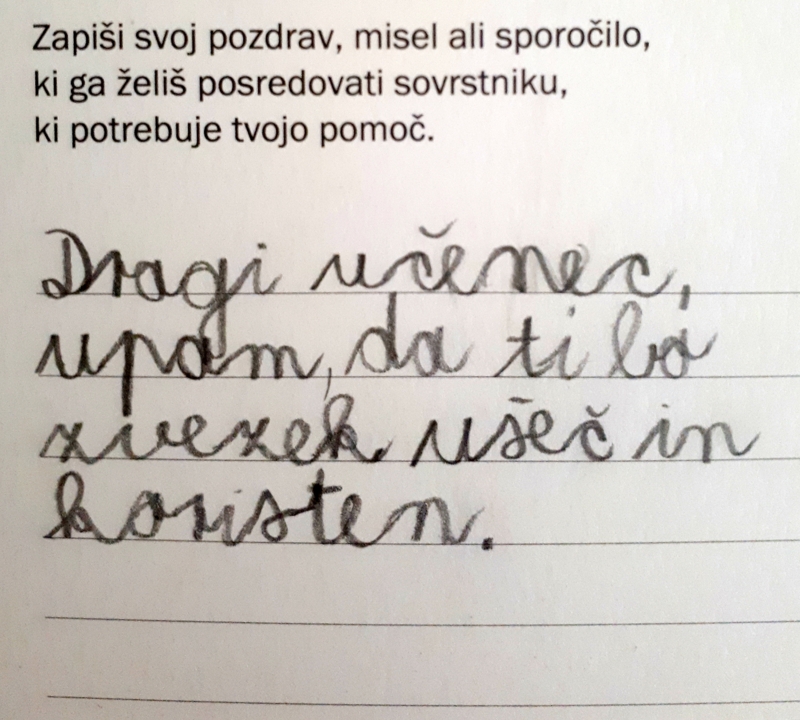 Zapiši svoj pozdrav, misel ali sporočilo,
ki ga želiš posredovati sovrstniku,
ki potrebuje tvojo pomoč.
Dragi učenec,
upam, da ti bo
zvezek ušeč in
koristen.